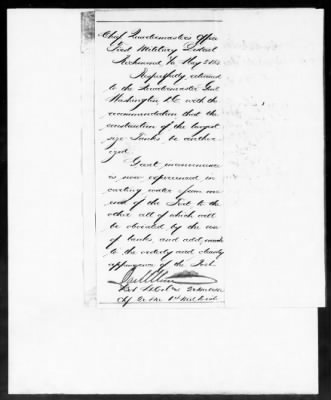 Chief Quartermasters Office
First Military District
Richmond, Va May 2
Respectfully returned
to the Quartermaster Genl
Washington D.C. with the
recommendation that the
construction of the largest
size Tanks be author
ized.
Great inconvenience
is now experienced in
carting water from one
end of the Post to the
other all of which will
be obviated by the use
of tanks, and add much
to the orderly and cleanly
appearance of the Post.
Chf Qr Mr 1st Mil Dist